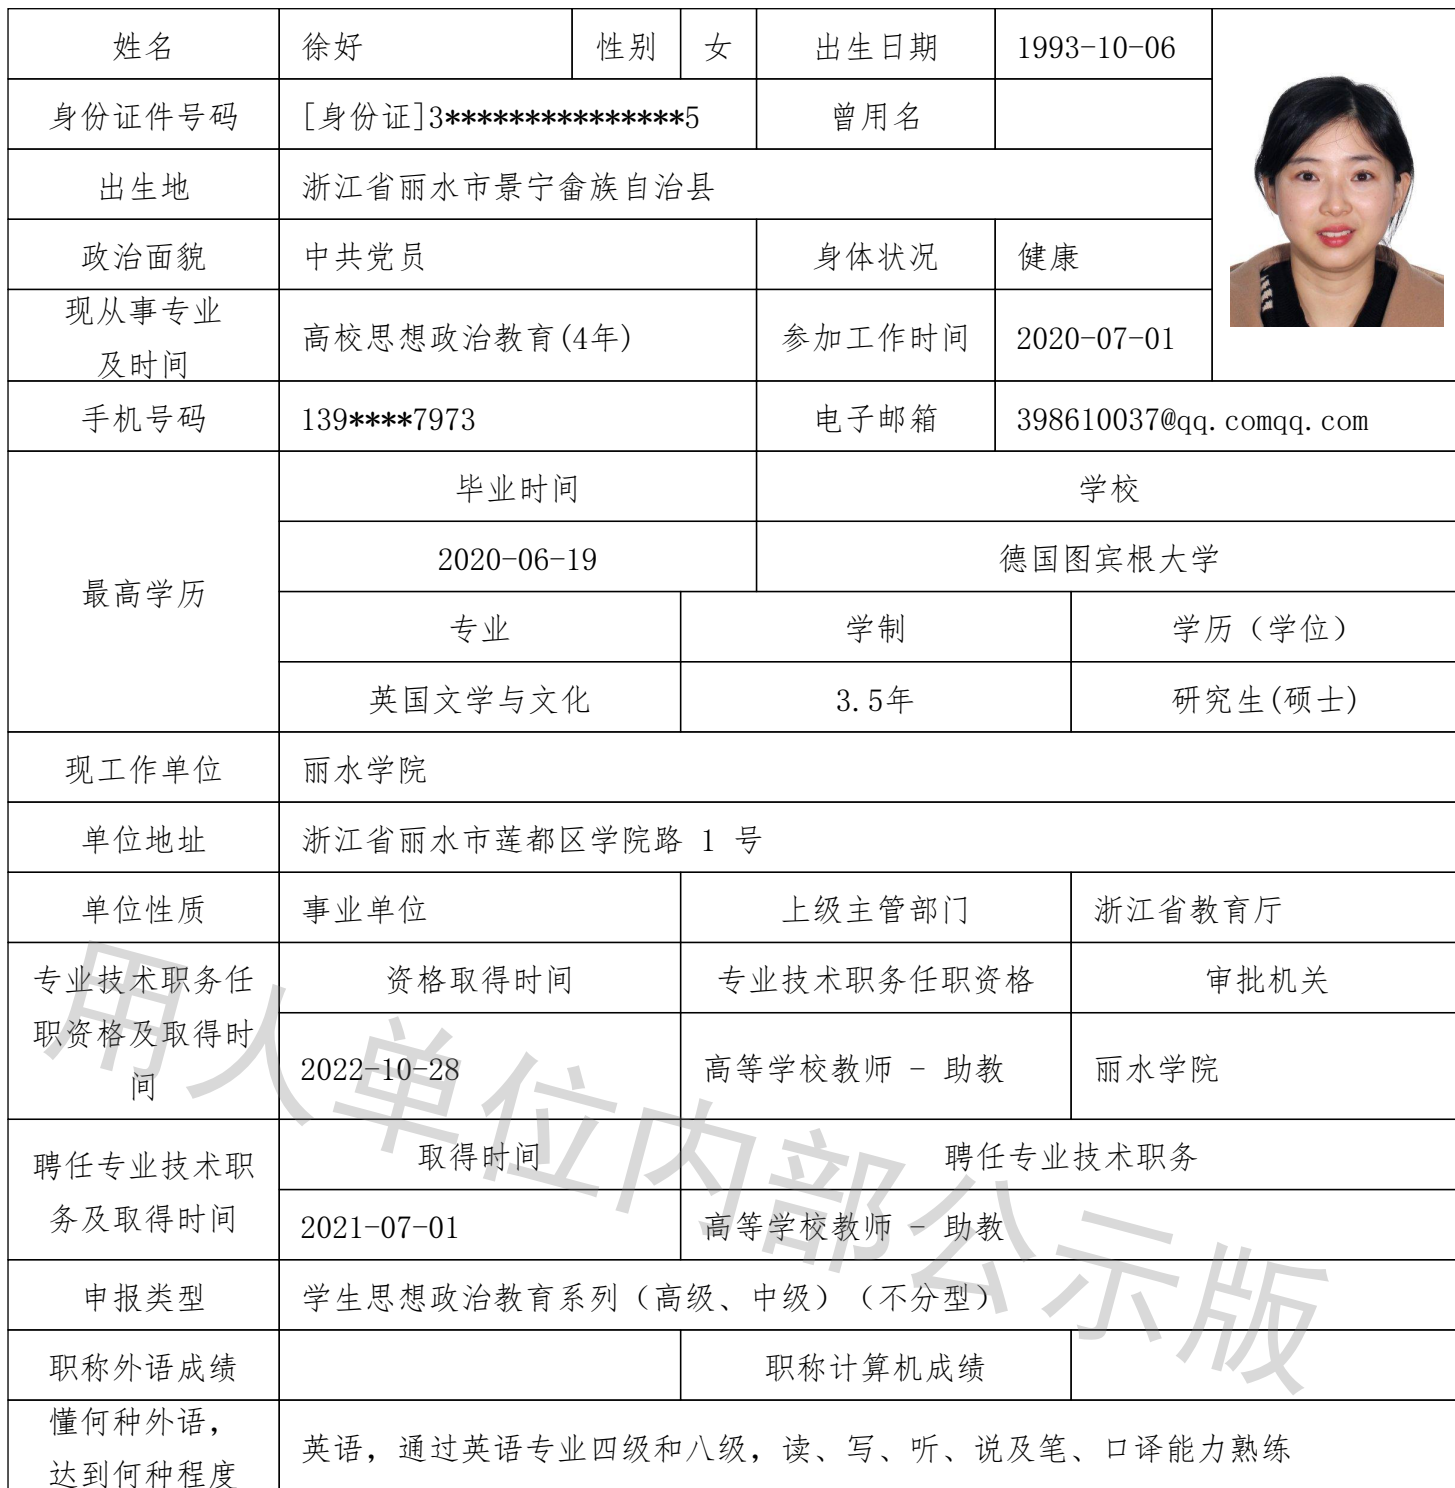 姓名 徐好 性别 女 出生日期 1993-10-06
身份证件号码 [身份证]3***************5 曾用名
出生地 浙江省丽水市景宁畲族自治县
政治面貌 中共党员 身体状况 健康
现从事专业
及时间
高校思想政治教育(4年) 参加工作时间 2020-07-01
手机号码 139****7973 电子邮箱 398610037@qq.comqq.com
最高学历
毕业时间 学校
2020-06-19 德国图宾根大学
专业 学制 学历（学位）
英国文学与文化 3.5年 研究生(硕士)
现工作单位 丽水学院
单位地址 浙江省丽水市莲都区学院路 1 号
单位性质 事业单位 上级主管部门 浙江省教育厅
专业技术职务任
职资格及取得时
间
资格取得时间 专业技术职务任职资格 审批机关
2022-10-28 高等学校教师 - 助教 丽水学院
聘任专业技术职
务及取得时间
取得时间 聘任专业技术职务
2021-07-01 高等学校教师 - 助教
申报类型 学生思想政治教育系列（高级、中级）（不分型）
职称外语成绩 职称计算机成绩
懂何种外语，
达到何种程度
英语，通过英语专业四级和八级，读、写、听、说及笔、口译能力熟练
用人单位内部公示版